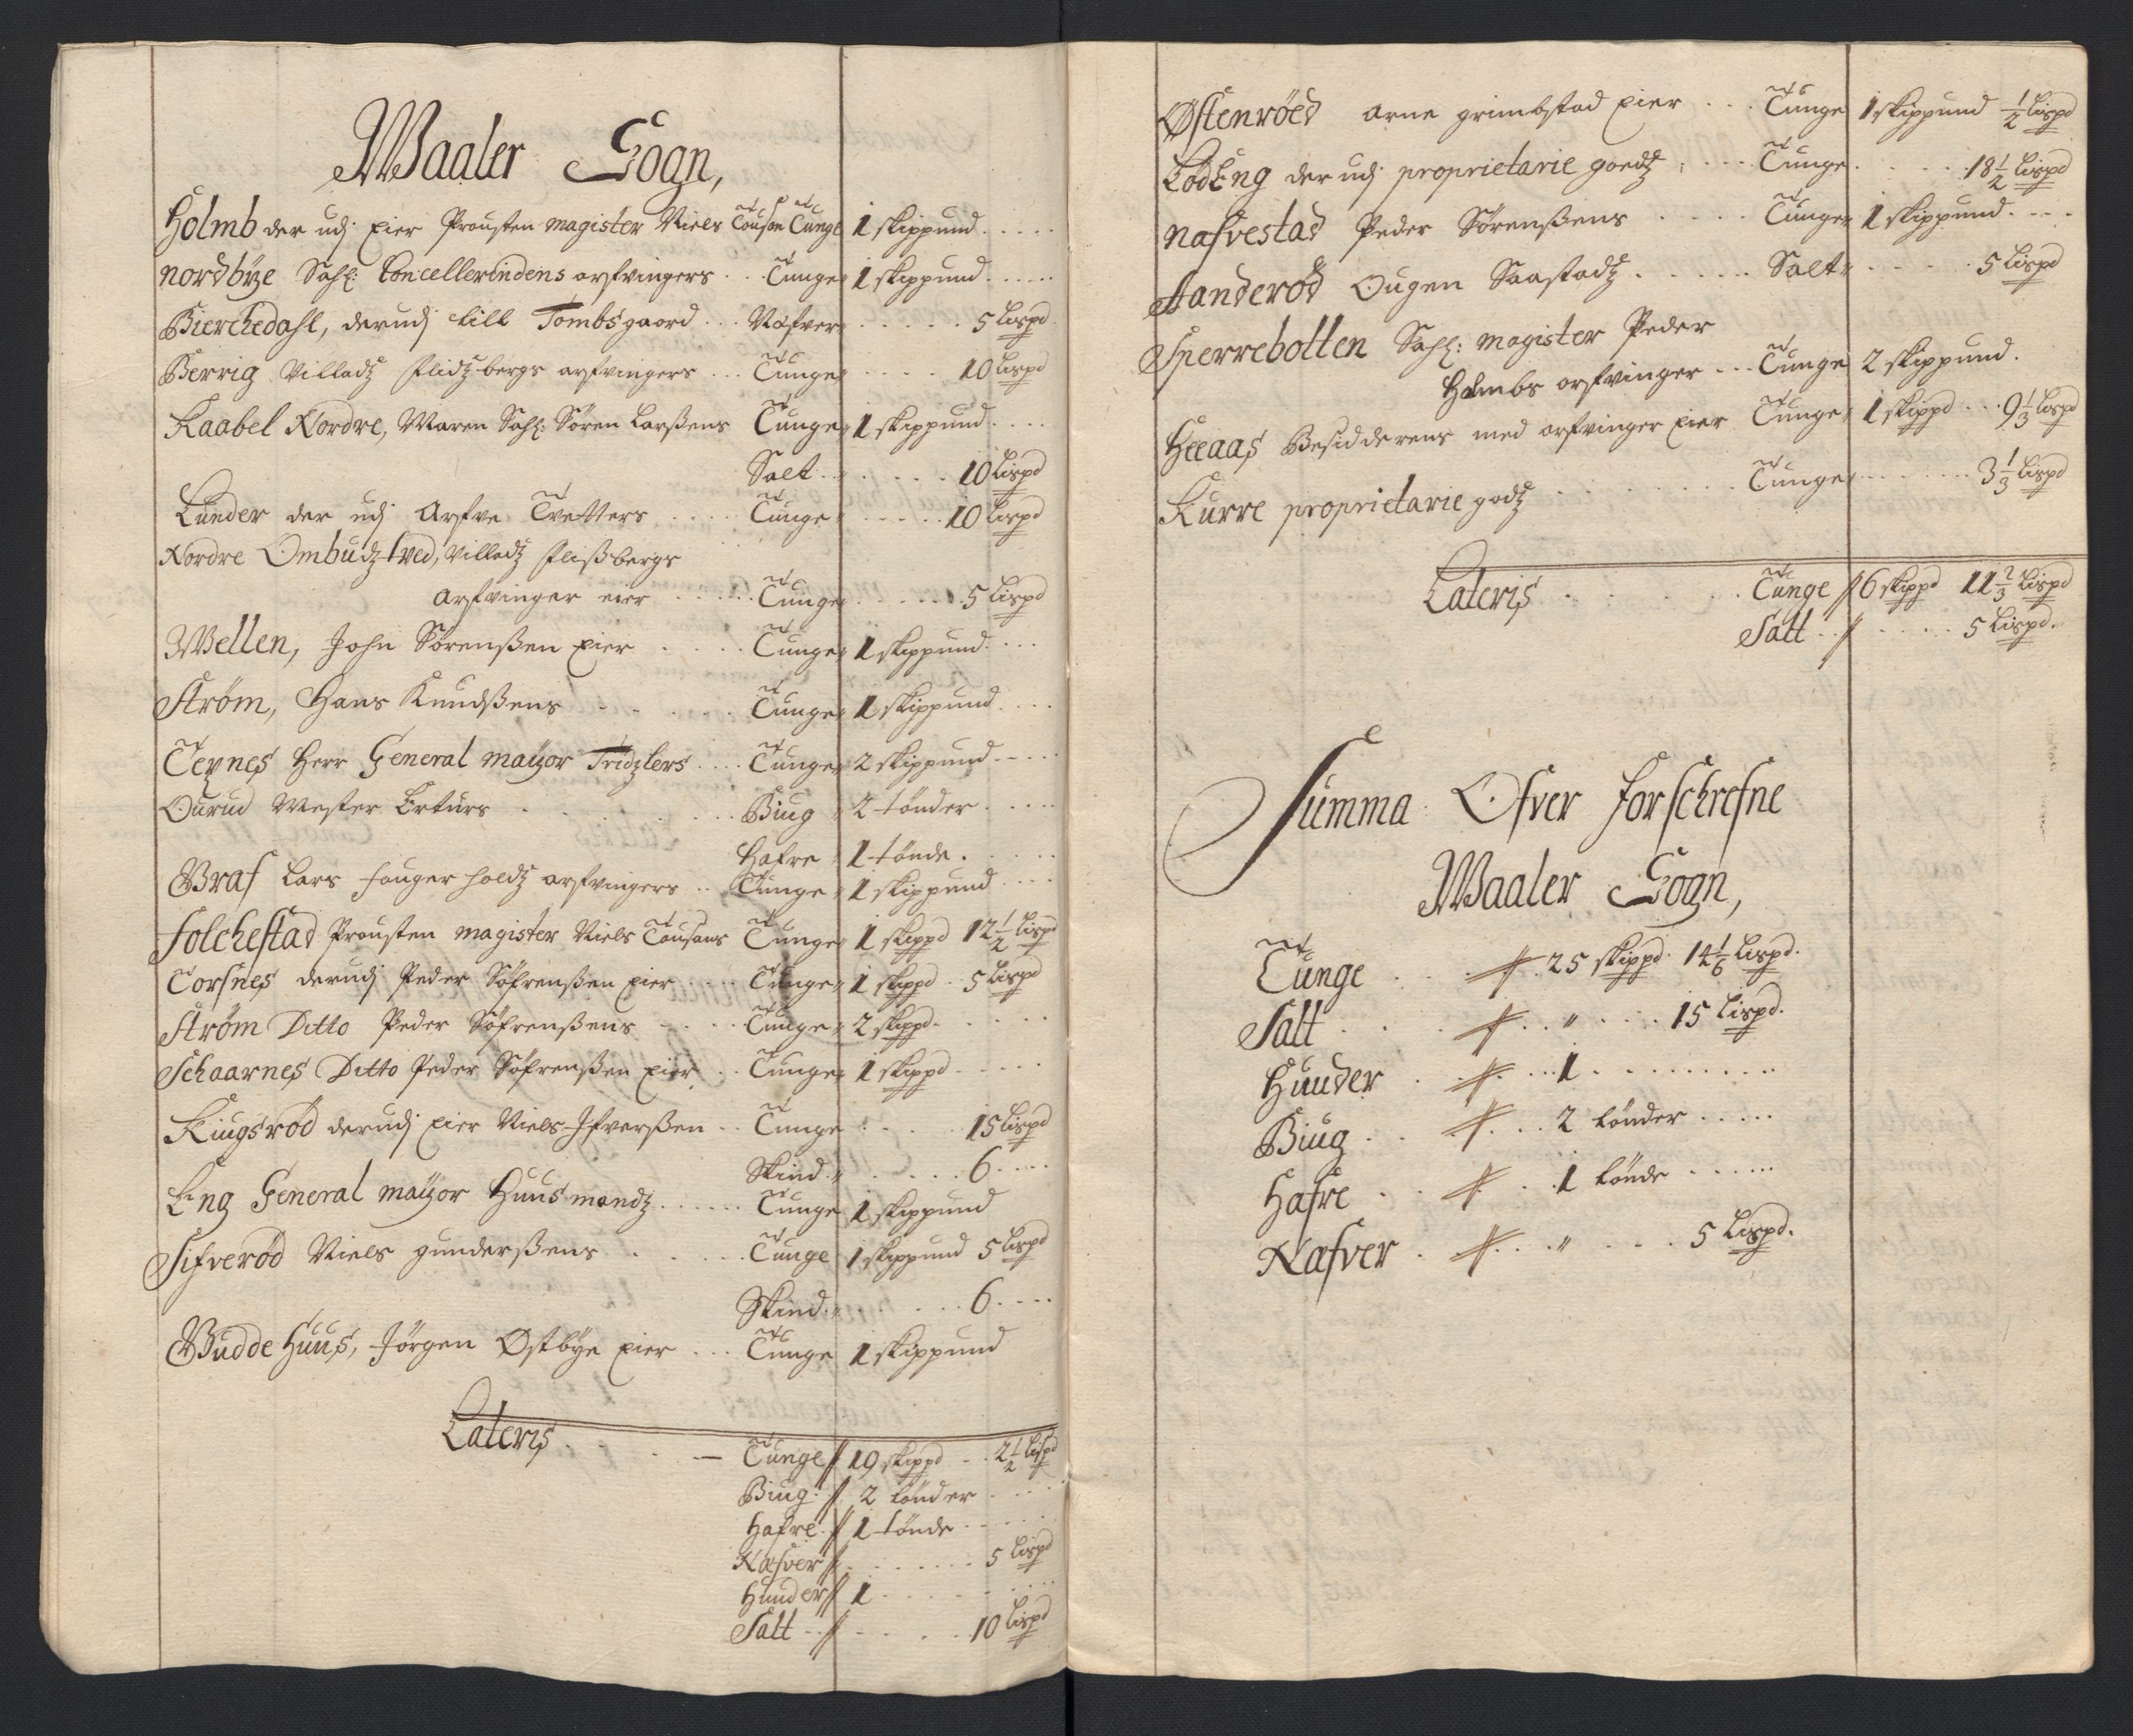 Waaler Sogn,
Holmb der udj Eier Prousten magister Niels Tousen Tunge 1 skippund
Nordbÿe Sahl: Concellerindens arfvingers Tunge 1 skippund
Bierchedahl, derudj till Tombsgaard Næfver 5 Lispd
Berrig Villadtz Flidtz-bergs arfvingers Tunge 10 Lispd
Kaabel Nordre, Maren Sahl: Sören Larßens Tunge 1 skippund
Salt 10 Lispd
Lunder der udj Arfve Tvetters Tunge 10 Lispd
Nordre Ombudz-tved, Villadtz Flißbergs
Arfvinger eier Tunge 5 Lispd
Wellen, John Sørenßen Eier Tunge 1 skippund
Strøm, Hans Knudßens Tunge 1 skippund
Teÿnes Herr General maÿor Tridzlers Tunge 2 skippund
Ourud Mester Erturs Biug 2 tönder
Hafre 1 tönde
Graf Lars fougerholdtz arfvingers Tunge 1 skippund
Folchestad Prousten magister Niels Tousens Tunge 1 skippd 12½ Lispd
Torsnes derudj Peder Söfrenßen Eier Tunge 1 skippd 5 Lispd
Strøm Ditto Peder Söfrenßens Tunge 2 skippd
Schaarnes Ditto Peder Söfrenßen Eier Tunge 1 skippd
Kiugsrød derudj Eier Niels Ifverßen Tunge 15 Lispd
Skind 6
Eng General maÿor Huusmandtz Tunge 1 skippund
Sifverød Niels gunderßens Tunge 1 skippund 5 Lispd
Skind 6
Gudde Huus, Jörgen Østbÿe Eier Tunge 1 skippund
Lateris Tunge // 19 skippd 2½ Lispd
Biug // 2 tönder
Hafre // 1 tönde
Næfver // 5 Lispd
Huuder // 1
Salt // 10 Lispd
Østenröed Arne grimbstad Eier Tunge 1 skippund ½ Lispd
LødEng der udj proprietarie goedtz Tunge 18½ Lispd
Nafvestad Peder Sörenßens Tunge 1 skippund
Aanderød Ougen Saastadtz Salt 5 Lispd
Sperrebotten Sahl: magister Peder
Holmbs arfvinger Tunge 2 skippund
Heeaas Besidderens med arfvinger Eier Tunge 1 skippd 9⅓ Lispd
Kurre proprietarie godtz Tunge 3⅓ Lispd
Lateris Tunge // 6 skippd 11⅔ Lispd
Salt // 5 Lispd
Summa Ofver forschrefne
Waaler Sogn,
Tunge // 25 skippd 14⅙ Lispd.
Salt // " 15 Lispd.
Huuder // 1
Biug // 2 tönder
Hafre // 1 tönde
Næfver // " 5 Lispd.